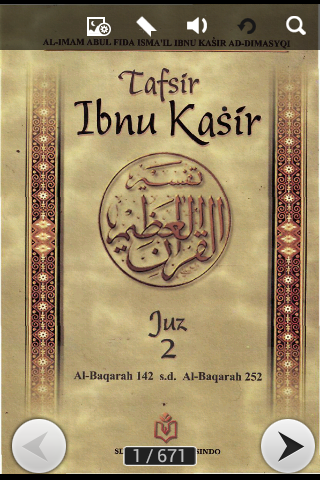 AL-IMAM ABUL FIDA ISMA'IL IBNU KAŚIR AD-DIMASYQI
Tafsir
Ibnu Kaṡir
تفسير
القرآن العظيم
Juz
2
Al-Baqarah 142 s.d. Al-Baqarah 252
1 / 671
SINDO